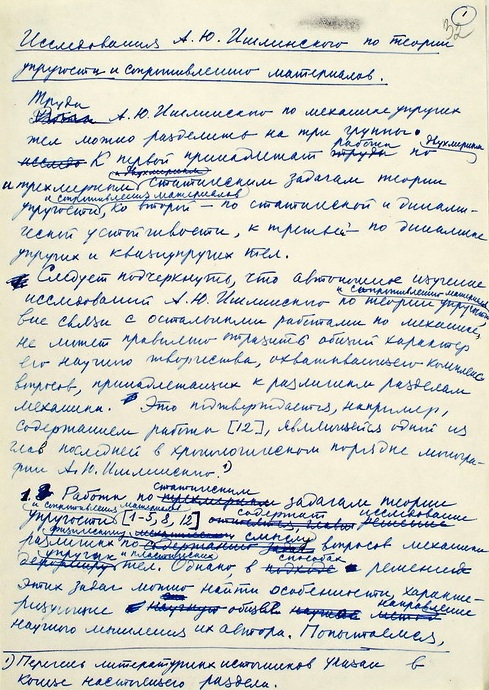 1
32
Исследования А.Ю. Ишлинского по теории
упругости и сопротивлению материалов.
Труды
А.Ю. Ишлинского по механике упругих
тел можно разделить на три группы.
К первой принадлежат работы по двухмерным
и трехмерным статическим задачам теории
упругости и сопротивления материалов, ко второй – по статической и динами-
ческой устойчивости, к третьей – по динамике
упругих и квазиупругих тел.
Следует подчеркнуть, что автономное изучение
исследований А.Ю. Ишлинского по теории упругости и сопротивлению материалов,
вне связи с остальными работами по механике,
не может правильно отразить общий характер
его научного творчества, охватывающего комплекс
вопросов, принадлежащих к различным разделам
механики. Это подтверждается, например,
содержанием работы [12], являющейся одной из
глав последней в хронологическом порядке моногра-
фии А.Ю. Ишлинского.¹)
1. Работы по статическим задачам теории
упругости и сопротивления материалов [1-5, 8, 12] содержат исследование
различных по физическому смыслу вопросов механики
упругих и пластических тел. Однако в способах решения
этих задач можно найти особенности, характе-
ризующие общее направление
научного мышления их автора. Попытаемся,
¹) Перечень литературных источников указан в
конце настоящего раздела.